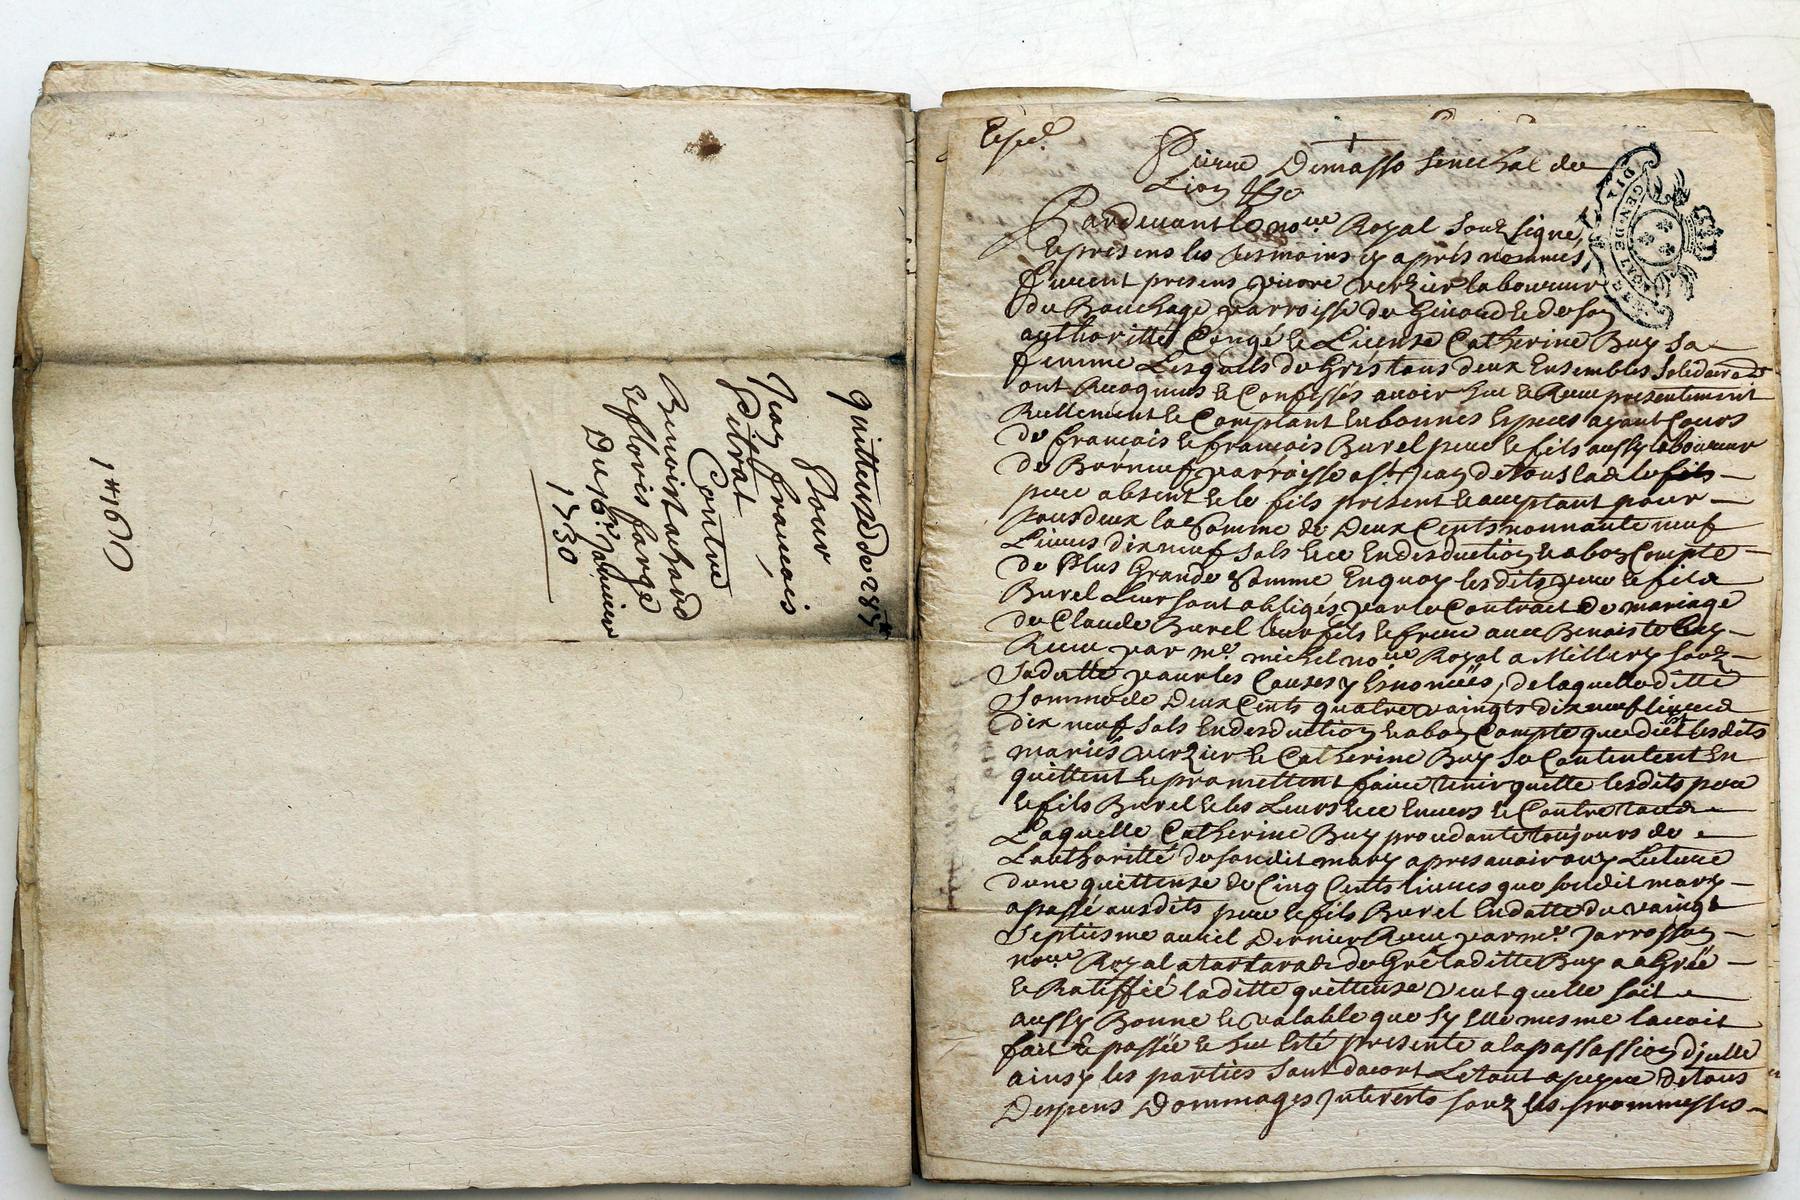 quittence de 285#
pour
Jean françois
Pitrat
Contre
Benoist tabard
et floris farge
Du 16e Janvier
1730
Exped.
Pierre Demasso senechal de
Lion
Pardevant le nore Royal souzsigné,
et presens les tesmoins cy aprés nommés,
furent presens pierre verzier laboureur
du Bouchage parroisse de et de son
authoritté Congé et License Catherine Buy sa
femme Lesquels de Gré tous deux Ensembles solidairemt
ont Recognus et Confessés avoir heu et Receu presentement
Reellement et Comptant en bonnes Especes ayant Cours
de francois et francois Burel pere et fils aussy laboureur
de parroisse a st Jean de ladt le fils
pere absent et le fils present et acceptant pour
tous deux la somme de Deux Cents nonnante neuf
Livres dix neuf sols et ce En desduction et a bon Compte
de Plus Grande somme En quoy lesdits pere et fils
Burel Leur sont obligés par le Contrat de mariage
de Claude Burel leur fils et frere avec Benoiste Buy
Receu par me michel nore Royal a Millery souz
sa datte pour les Causes y Enoncées, de laquelle ditte
somme de Deux Cents quatre vaingts dix neuf livres
dix neuf sols En desduction et a bon Compte que dict lesdits
mariés verzier et Catherine Buy se Contentent En
quittent et promettent faire tenir quitte lesdits pere
et fils Burel et les Leurs et ce Envers et Contre tous
Laquelle Catherine Buy procedante toujours de
L'authoritté de sondit mary apres avoir ouy Lecture
d'une quittence de Cinq Cents livres que sondit mary
a passé ausdits pere et fils Burel En datte du vaingt
septiesme avril Dernier Receu par me Jarrosson
nore Royal a tartaras de Gré laditte Buy a aGréé
et Ratiffié laditte quittence veut quelle soit
aussy Bonne et valable que sy Elle mesme l'avoit
fait et passée et heu Esté presente a la passassion d'jcelle
ainsy les parties sont dacort Le tout a peyne de tous
Despens Dommages Jnterests souz les prommesses